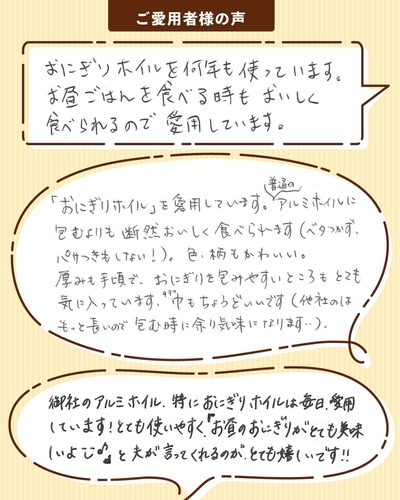 ご愛用者様の声
おにぎりホイルを何年も使っています。
お昼ごはんを食べる時も おいしく
食べられるので 愛用しています。
「おにぎりホイル」を愛用しています。普通のアルミホイルに
包むよりも 断然おいしく食べられます(ベタつかず、
パサつきもしない!)。色・柄もかわいい。
厚みも手頃で、おにぎりを包みやすいところも とても
気に入っています。巾もちょうどいいです(他社のは
もっと長いので 包む時に余り気味になります…)。
御社のアルミホイル、特におにぎりホイルは毎日、愛用
しています!とても使いやすく、『お昼のおにぎりがとても美味
しいよ♪』と 夫が言ってくれるのが、とても嬉しいです!!